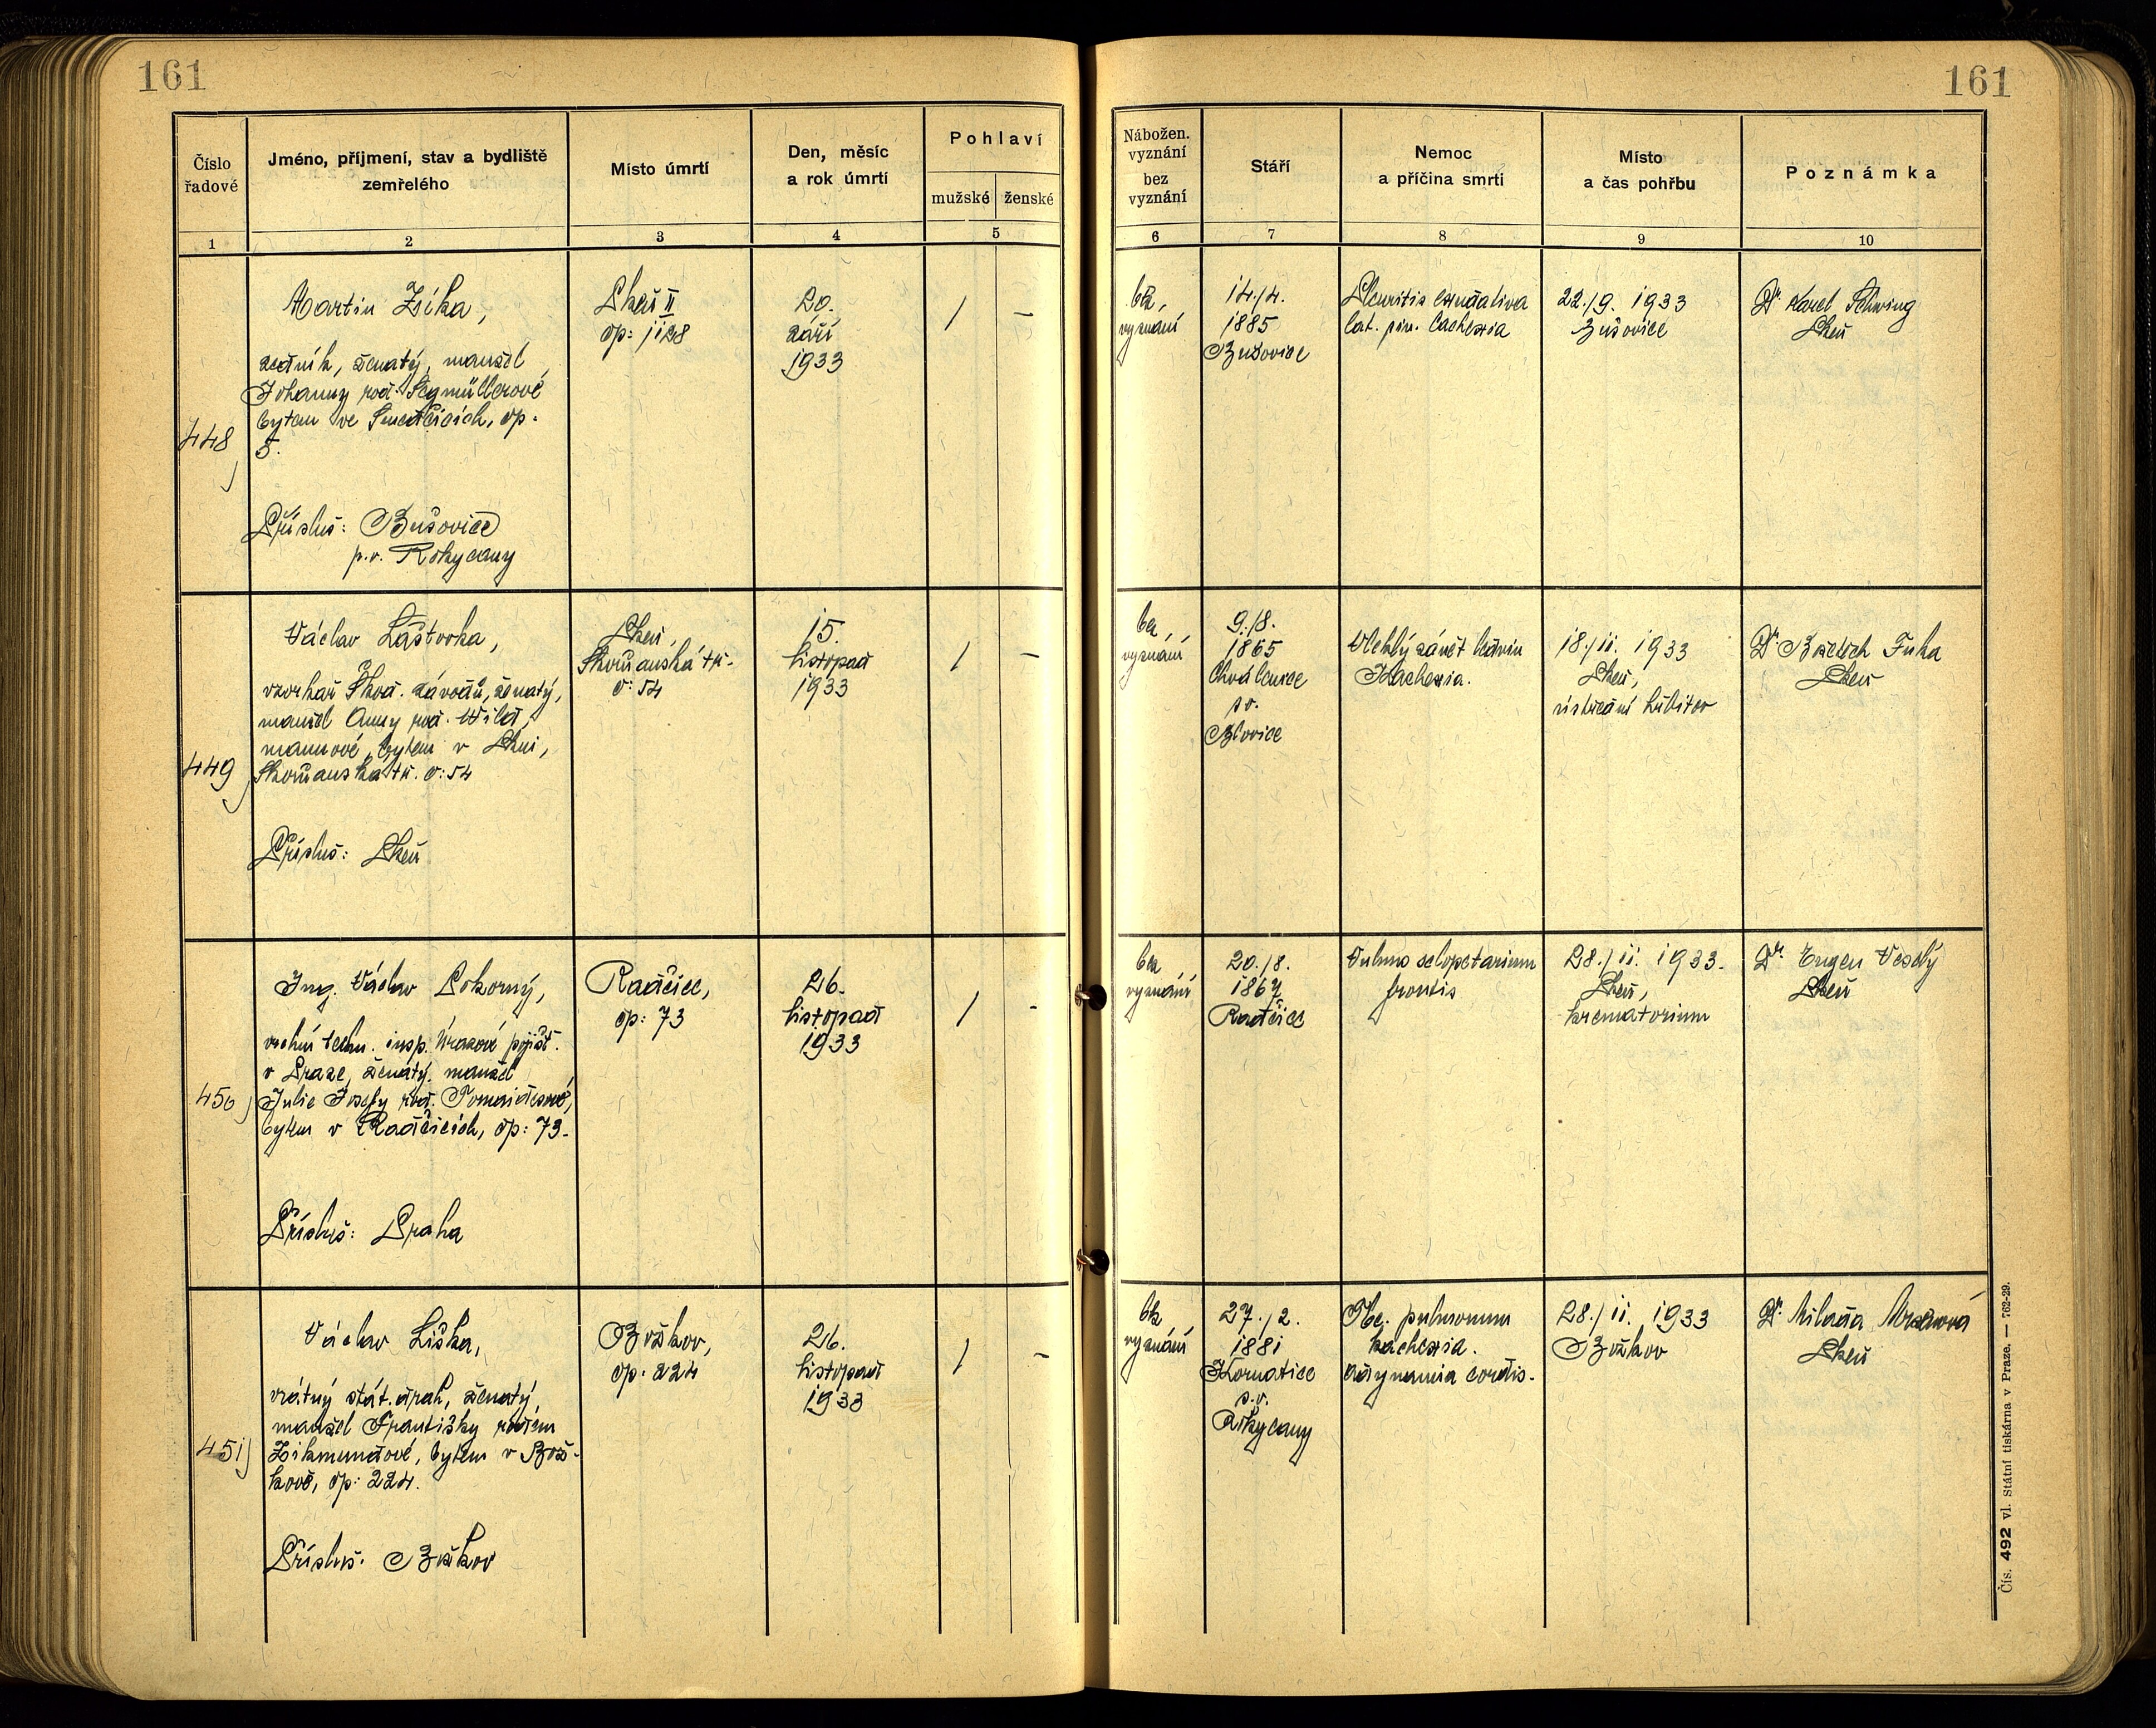 161
161
Číslo
řadové
Jméno, příjmení, stav a bydliště
zemřelého
Místo úmrtí
Den, měsíc
a rok úmrtí
Pohlaví
mužské
ženské
Nábožen.
vyznání
bez
vyznání
Stáří
Nemoc
a příčina smrti
Místo
a čas pohřbu
Poznámka
1
2
3
4
5
6
7
8
9
10
448
Martin Zíka,
ženatý, manžel
Johanny roz.
bytem ve čp.
5.
Přísluš: Bušovice
p.o. Rokycany
Plzeň II
čp: 1128
20.
září
1933
/
-
bez
vyznání
14./4.
1885
Bušovice
Pleuritis exsudativa
lat. sin. Cachexia
22./9. 1933
Bušovice
Dr. Karel
Plzeň
449
Václav Laštovka,
Škod. závodů, ženatý,
manžel Anny roz. Wild-
mannové, bytem v Plzni,
Skvrňanská tř. č: 54
Přísluš: Plzeň
Plzeň,
Skvrňanská tř.
č: 54
15.
listopad
1933
/
-
bez
vyznání
9./8.
1865
Chválenice
p.o.
Blovice
Vleklý zánět ledvin
Kachexia.
18./11. 1933
Plzeň,
ústřední hřbitov
Dr. Bedřich Fuka
Plzeň
450
Ing. Václav Pokorný,
vrchní techn. insp. Úrazové pojišt.
v Praze, ženatý, manžel
Julie Josefy roz.
bytem v Radčicích, čp: 73.
Přísluš: Praha
Radčice,
čp: 73
26.
listopad
1933
/
-
bez
vyznání
20./8.
1867
Radčice
Vulnus sclopetarium
frontis
28./11. 1933.
Plzeň,
krematorium
Dr. Eugen Veselý
Plzeň
451
Václav Liška,
vrátný stát. drah, ženatý,
manžel Františky rozem
Zikmundové, bytem v Bož-
kově, čp: 224.
Přísluš: Božkov
Božkov,
čp: 224
26.
listopad
1933
/
-
bez
vyznání
27./2.
1881
Kornatice
p.o.
Rokycany
Tbc. pulmonum
kachexia.
Adynamia cordis.
28./11. 1933
Božkov
Dr. Milada Mrázová
Plzeň
Čís. 492 vl. Státní tiskárna v Praze. — 762-29.